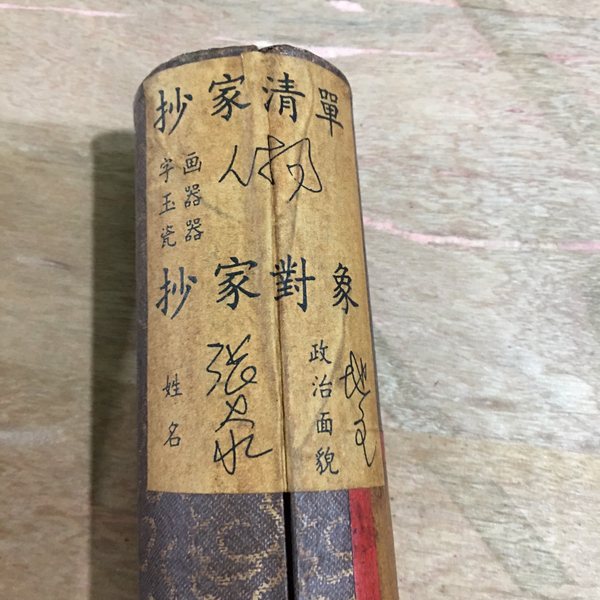 抄家清單
字画
玉器
瓷器
人物
抄家對象
姓名
张
政治面貌
地主